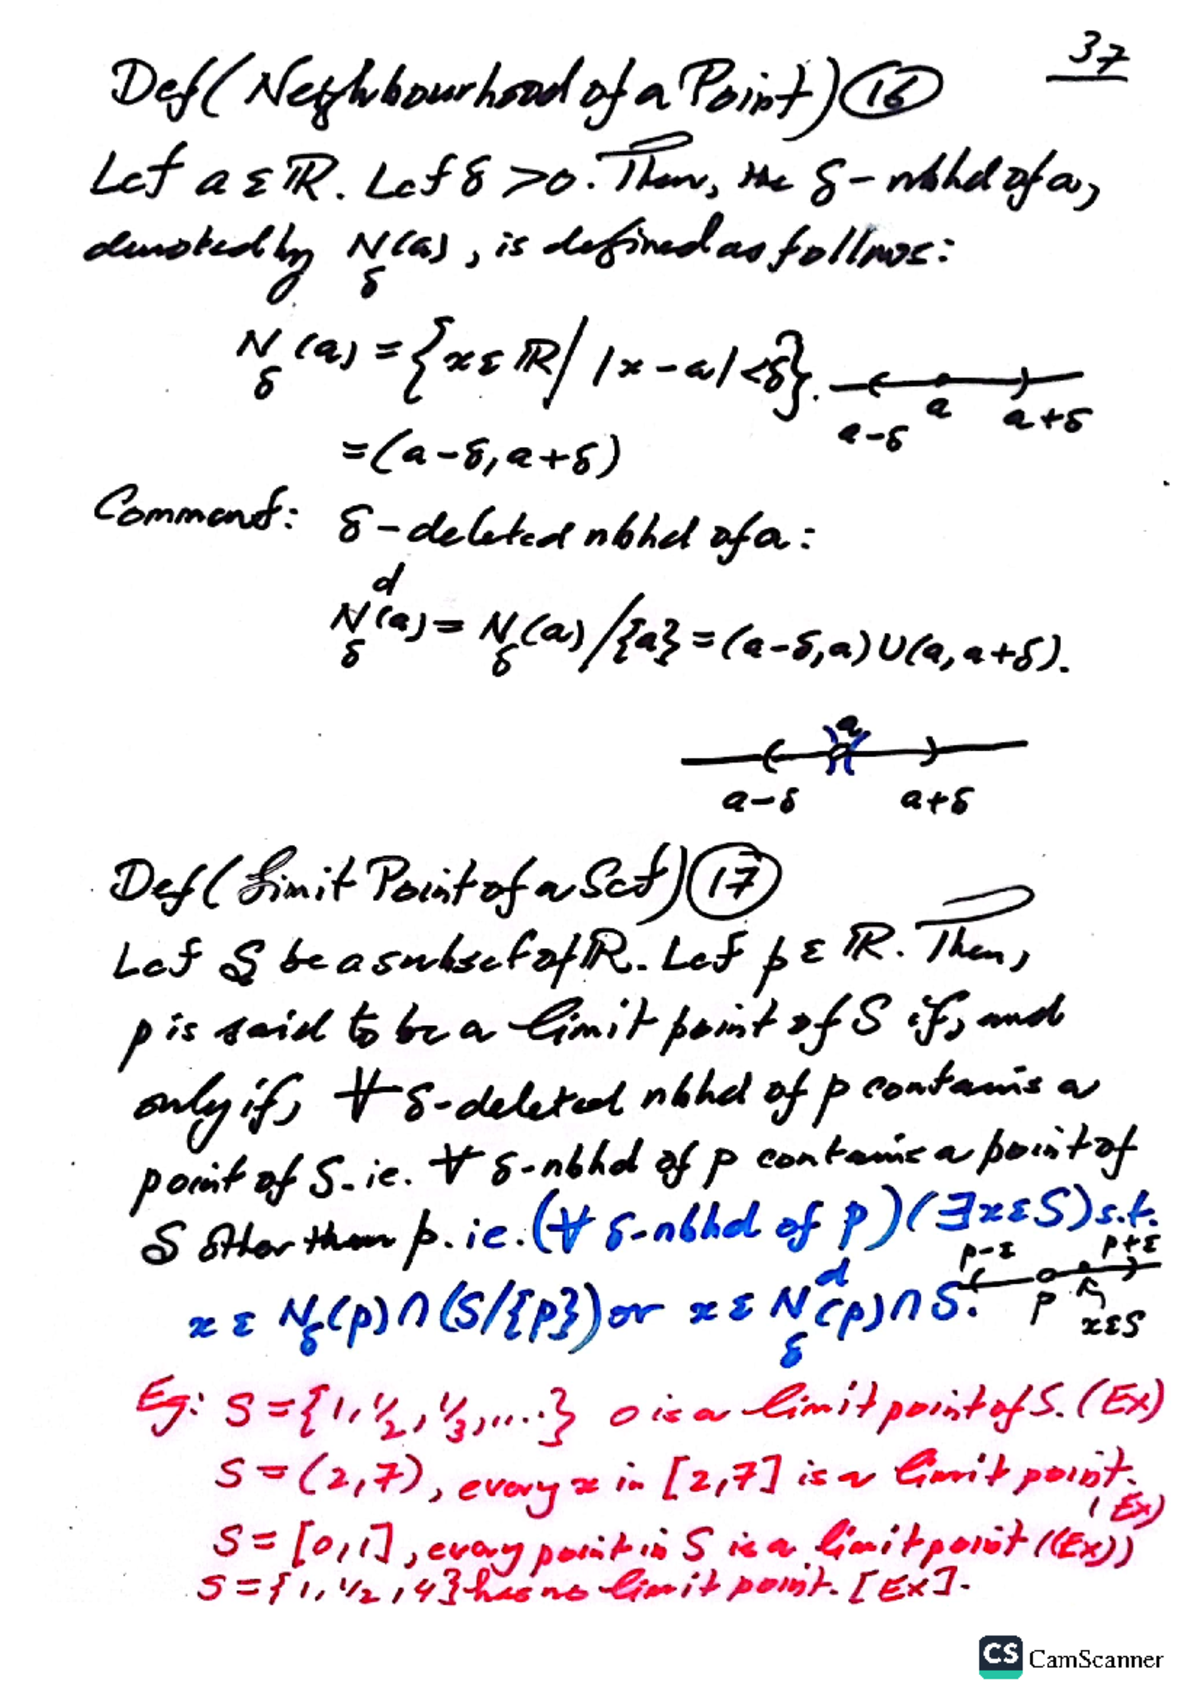 37
Def (Neighbourhood of a Point) (16)
Let a ε ℝ. Let δ > 0. Then, the δ - nbhd of a,
denoted by N_δ(a), is defined as follows:
N_δ(a) = {x ε ℝ / |x - a| < δ}.
a-δ a a+δ
= (a-δ, a+δ)
Comment: δ - deleted nbhd of a:
N_δ^d(a) = N_δ(a) / {a} = (a-δ, a) ∪ (a, a+δ).
a
a-δ a+δ
Def (Limit Point of a Set) (17)
Let S be a subset of ℝ. Let p ε ℝ. Then,
p is said to be a limit point of S if, and
only if, ∀ δ-deleted nbhd of p contains a
point of S. ie. ∀ δ-nbhd of p contains a point of
S other than p. ie. (∀ δ-nbhd of p) (∃ x ε S) s.t.
p-ε p+ε
x ε N_δ(p) ∩ (S/{p}) or x ε N_δ^d(p) ∩ S.
p x ε S
Eg: S = {1, 1/2, 1/3, ....} 0 is a limit point of S. (Ex)
S = (2,7), every x in [2,7] is a limit point.
(Ex)
S = [0,1], every point in S is a limit point ((Ex))
S = {1, 1/2, 4} has no limit point. [Ex].
CS CamScanner